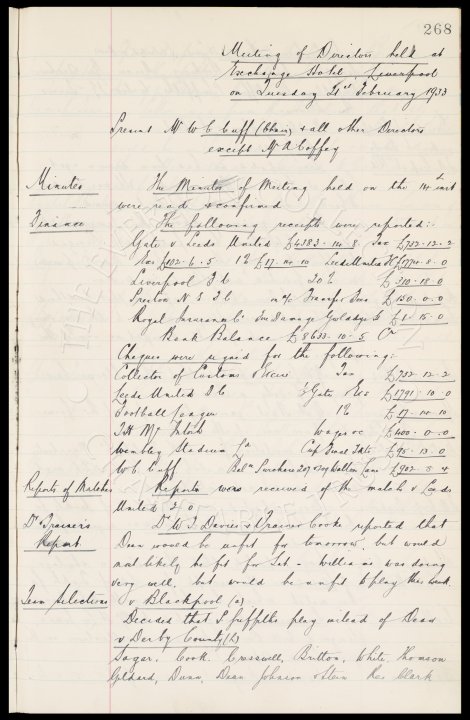 268
Meeting of Directors held at
Exchange Hotel, Liverpool
on Tuesday 21st February 1933
Present Mr W C Cuff (Chair) & all other Directors
except Mr A Coffey
Minutes The Minutes of Meeting held on the 14th inst
were read & confirmed
Finance The following receipts were reported:-
Gate v Leeds United £4383-14-8 Tax £752-12-2
£102-6-5 1% £17-14-10 Leeds United £1774-8-0
Liverpool F C 20% £310-18-0
Preston N E F C Transfer £150-0-0
Royal Insurance Co Damage £1-15-0
Bank Balance £8633-10-5 Cr
Cheques were signed for the following:-
Collector of Customs & Excise Tax £752-12-2
Leeds United F C ½ Gate £1791-10-0
Football League 1% £17-14-10
T H McIntosh Wages &c £400-0-0
Wembley Stadium Ld Cup Final £95-13-0
W C Cuff Purchase Walton Lane £902-8-4
Reports of Matches Reports were received of the match v Leeds
United 2/0
Dr & Trainer's Dr W F Davies & Trainer Cooke reported that
Report Dean would be unfit for tomorrow, but would
most likely be fit for Sat - Williams was doing
very well, but would be unfit to play this week.
Team Selections v Blackpool (a)
Decided that T Griffiths play instead of Dean
v Derby County (h)
Sagar, Cook, Cresswell, Britton, White, Thomson
Geldard, Dunn, Dean Johnson & Stein Res Clark